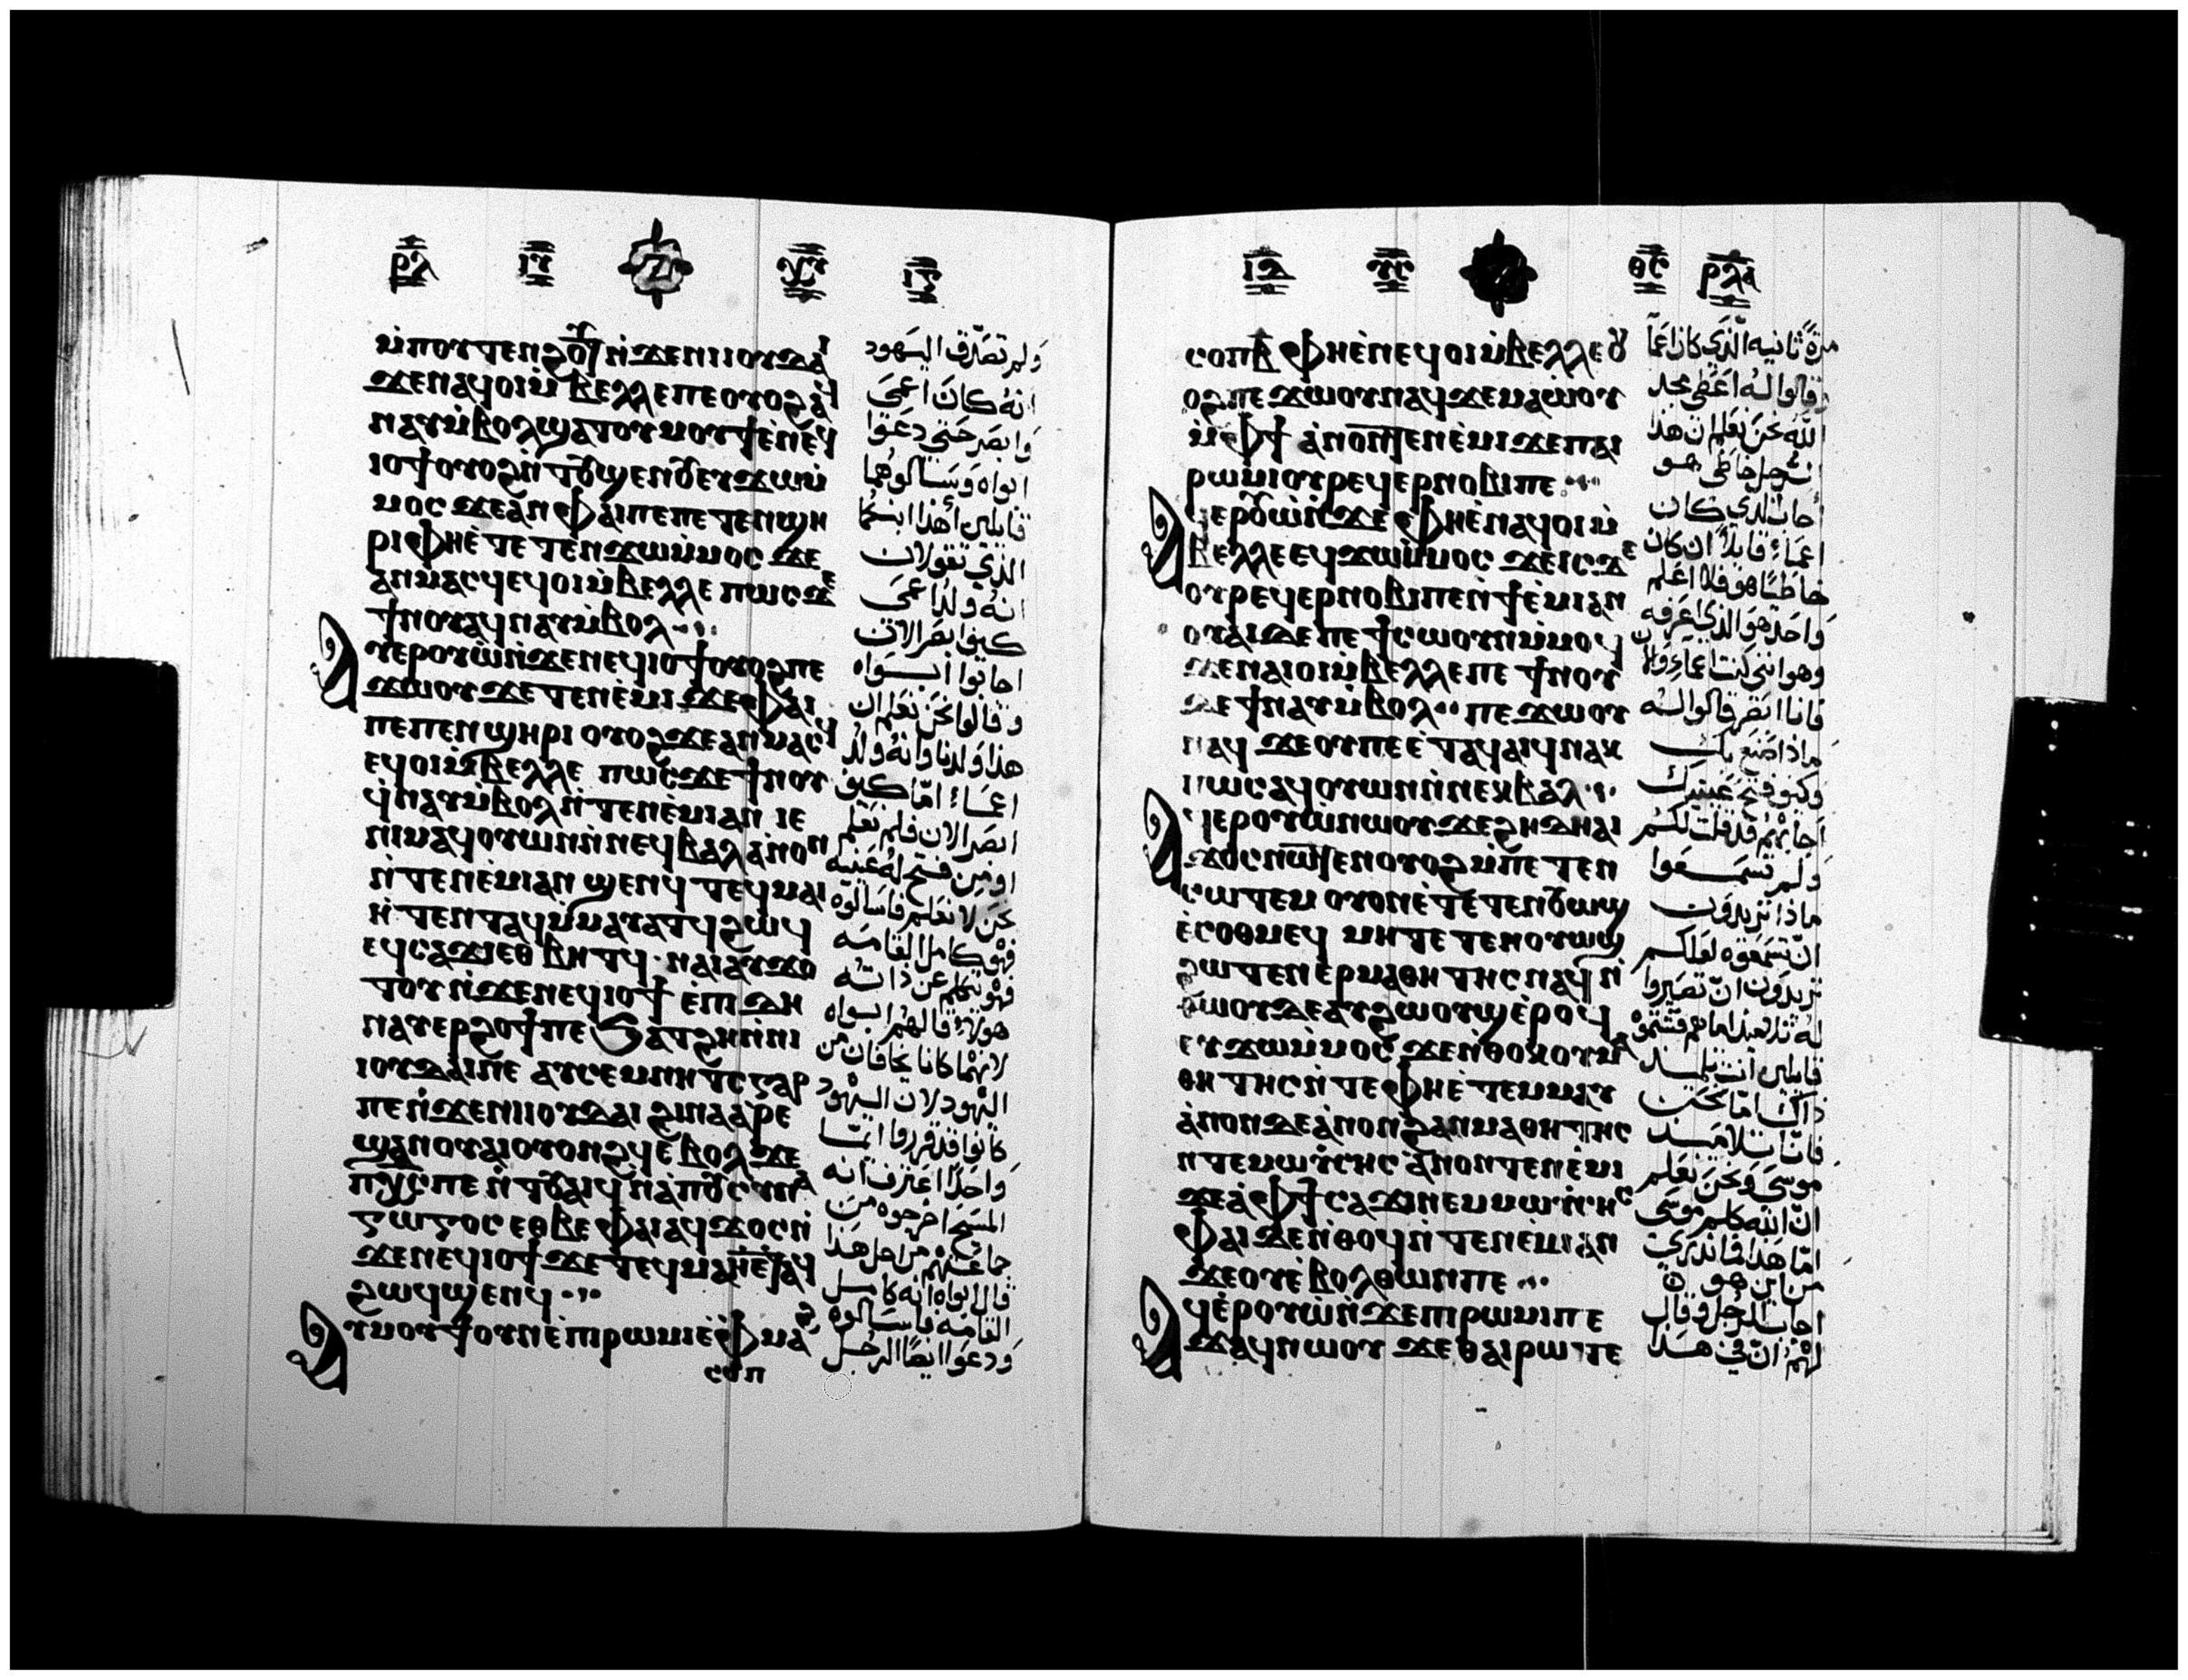 ⲙ̀ⲡⲟⲩⲧⲉⲛϩⲟⲩⲧ ⲛ̀ϫⲉⲛⲓⲓⲟⲩⲇⲁⲓ
ϫⲉⲛⲁϥⲟⲓⲙ̀ⲃⲉⲗⲗⲉⲡⲉⲟⲩⲟϩⲁϥ
ⲛⲁⲩⲙ̀ⲃⲟⲗϣⲁⲧⲟⲩⲙⲟⲩϯⲉ̀ⲛⲉϥ
ⲓⲟϯⲟⲩⲟϩⲛ̀ⲧⲟⲩϣⲉⲛⲟⲩⲉⲩϫⲱⲙ̀
ⲙⲟⲥ ϫⲉⲁ̀ⲛⲫⲁⲓⲡⲉⲡⲉⲧⲉⲛϣⲏ
ⲣⲓⲫⲏⲉ̀ⲧⲉⲧⲉ̀ⲛϫⲱⲙ̀ⲙⲟⲥ ϫⲉ
ⲁⲛⲙⲁⲥϥⲉϥⲟⲓⲙ̀ⲃⲉⲗⲗⲉ ⲡⲱⲥϫⲉ
ϯⲛⲟⲩⲁϥⲛⲁⲩⲙ̀ⲃⲟⲗ
ⲁⲩⲉⲣⲟⲩⲱ̀ⲛ̀ϫⲉⲛⲉϥⲓⲟϯⲟⲩⲟϩⲡⲉ
ϫⲱⲟⲩ ϫⲉⲧⲉⲛⲉ̀ⲙⲓϫⲉⲫⲁⲓ
ⲡⲉⲡⲉⲛϣⲏⲣⲓ ⲟⲩⲟϩϫⲉⲁⲛⲙⲁⲥϥ
ⲉϥⲟⲓⲙ̀ⲃⲉⲗⲗⲉ ⲡⲱⲥϫⲉϯⲛⲟⲩ
ϥ̀ⲛⲁⲩⲙ̀ⲃⲟⲗⲛ̀ⲧⲉⲛⲉⲙⲓⲁⲛ ⲓⲉ
ⲛⲓⲙⲁϥⲟⲩⲱⲛⲛ̀ⲛⲉϥⲃⲁⲗⲁ̀ⲛⲟⲛ
ⲛ̀ⲧⲉⲛⲉ̀ⲙⲓⲁⲛ ϣⲉⲛϥ ⲧⲉϥⲙⲁⲓ
ⲏ̀ ⲧⲉⲛⲧⲁϥⲙ̀ⲙⲁⲩⲁⲧϥϩⲱϥ
ⲉϥⲥⲁϫⲓⲉⲑⲃⲏⲧϥ ⲛⲁⲓⲁⲩϫⲟ
ⲧⲟⲩⲛ̀ϫⲉⲛⲉϥⲓⲟϯ ⲉ̀ⲡⲓⲇⲏ
ⲛⲁⲩⲉⲣϩⲟϯⲡⲉϧⲁⲧϩⲏⲛ̀ⲛⲓ
ⲓⲟⲩⲇⲁⲓⲡⲉ ⲁⲩⲥⲉⲙⲛⲏⲧⲥⲅⲁⲣ
ⲡⲉⲛ̀ϫⲉⲛⲓⲓⲟⲩⲇⲁⲓ ϩⲓⲛⲁⲁⲣⲉ
ϣⲁⲛⲟⲩⲁⲓⲟⲩⲟⲛϩϥⲉ̀ⲃⲟⲗϫⲉ
ⲡⲭⲥⲡⲉ
ⲅⲱⲅⲟⲥ ⲉⲑⲃⲉⲫⲁⲓⲁϥϫⲟⲥⲛ̀
ϫⲉⲛⲉϥⲓⲟϯ ϫⲉⲧⲉϥⲙⲁⲓⲏⲉⲧⲁϥ
ϩⲱϥϣⲉⲛϥ
ⲁⲩⲙⲟⲩϯⲟⲩⲛⲉ̀ⲡⲓⲣⲱⲙⲓⲉ̀ⲫⲙⲁϩ
ⲥⲟⲡ
ولم تصدق اليهود
انه كان اعمى
وابصر حتى دعوا
ابواه وسالوهما
قايلين أهذا ابنكما
الذي تقولان
انه ولد اعمى
كيف ابصر الان
اجابوا ابواه
وقالوا نحن نعلم ان
هذا ولدنا وانه ولد
اعماء اما كيف
ابصر الان فلم نعلم
او من فتح له عينيه
نحن لا نعلم فاسالوه
فهو كامل القامه
فهو يتكلم عن ذاته
هولاء قالهم ابواه
لانهما كانا يخافان من
اليهود لان اليهود
كانوا قد قرروا انما
واحدا اعترف انه
المسيح اخرجوه من
جماعتهم من اجل هذا
قال ابواه انه كامل
القامه فاسالوه
ودعوا ايضا الرجل
ⲥⲟⲡⲃ̅ ⲫⲏⲉ̀ⲛⲉϥⲟⲓⲙ̀ⲃⲉⲗⲗⲉ ⲟⲩ
ⲟϩⲡⲉϫⲱⲟⲩⲛⲁϥϫⲉⲙⲁⲱ̀ⲟⲩ
ⲙ̀ⲫϯ ⲁ̀ⲛⲟⲛⲧⲉⲛⲉ̀ⲙⲓϫⲉⲡⲁⲓ
ⲣⲱⲙⲓⲟⲩⲣⲉϥⲉⲣⲛⲟⲃⲓⲡⲉ
ⲁϥⲉⲣⲟⲩⲱ̀ⲛ̀ϫⲉⲫⲏⲉ̀ⲛⲁϥⲟⲓⲙ̀
ⲃⲉⲗⲗⲉⲉϥϫⲱⲙ̀ⲙⲟⲥ ϫⲉⲓⲥϫⲉ
ⲟⲩⲣⲉϥⲉⲣⲛⲟⲃⲓⲡⲉⲛ̀ϯⲉ̀ⲙⲓⲁⲛ
ⲟⲩⲁⲓⲇⲉⲡⲉϯⲥⲱⲟⲩⲛⲙ̀ⲙⲟϥ
ϫⲉⲛⲁⲓⲟⲓⲙ̀ⲃⲉⲗⲗⲉⲡⲉ ϯⲛⲟⲩ
ⲇⲉϯⲛⲁⲩⲙ̀ⲃⲟⲗ ⲡⲉϫⲱⲟⲩ
ⲛⲁϥ ϫⲉⲟⲩⲡⲉⲉ̀ⲧⲁϥⲁⲓϥⲛⲁⲕ
ⲡⲱⲥⲁϥⲟⲩⲱⲛⲛ̀ⲛⲉⲕⲃⲁⲗ
ⲁϥⲉⲣⲟⲩⲱ̀ⲛⲱⲟⲩϫⲉϩⲏⲇⲏⲁⲓ
ϫⲟⲥⲛⲱⲧⲉⲛⲟⲩⲟϩⲙ̀ⲡⲉⲧⲉⲛ
ⲥⲱⲧⲉⲙ ⲟⲩⲟⲛⲉ̀ⲧⲉⲧⲉⲛⲟⲩⲱϣ
ⲉ̀ⲥⲟⲑⲙⲉϥ ⲙⲏⲧⲉⲧⲉⲛⲟⲩⲱϣ
ϩⲱⲧⲉⲛⲉ̀ⲣⲙⲁⲑⲏⲧⲏⲥⲛⲁϥⲛ̀
ⲑⲱⲟⲩⲇⲉⲁⲩϩⲱⲟⲩϣⲉ̀ⲣⲟϥ
ⲉⲩϫⲱⲙ̀ⲙⲟⲥ ϫⲉⲛ̀ⲑⲟⲕⲟⲩⲙⲁ
ⲑⲏⲧⲏⲥⲛ̀ⲧⲉⲫⲏⲉ̀ⲧⲉⲙⲙⲁⲩ
ⲁ̀ⲛⲟⲛⲇⲉⲁ̀ⲛⲟⲛϩⲁⲛⲙⲁⲑⲏⲧⲏⲥ
ⲛⲧⲉⲙⲱⲩ̀ⲥⲏⲥ ⲁ̀ⲛⲟⲛⲧⲉⲛⲉ̀ⲙⲓ
ϫⲉⲁ̀ⲫϯⲥⲁϫⲓⲛⲉⲙⲙⲱⲩ̀ⲥⲏⲥ
ⲫⲁⲓϫⲉⲛ̀ⲑⲟϥⲛ̀ⲧⲉⲛⲉ̀ⲙⲓⲁⲛ
ϫⲉⲟⲩⲉ̀ⲃⲟⲗⲑⲱⲛⲡⲉ
ⲁϥⲉ̀ⲣⲟⲩⲱ̀ⲛ̀ϫⲉⲡⲓⲣⲱⲙⲓⲡⲉ
ϫⲁϥⲛⲱⲟⲩ ϫⲉⲑⲁⲓⲣⲱⲧⲉ
مرة ثانيه الذي كان اعما
وقالوا له اعطي مجد
الله نحن نعلم ان هذا
الرجل خاطي هو
أجاب الذي كان
اعماء قايلا ان كان
خاطئا هو فلا اعلم
واحد هو الذي اعرفه
وهو انني كنت اعماء والان
فانا ابصر قالوا له
ماذا اصنع بك
وكيف فتح عينيك
اجابهم قد قلت لكم
ولم تسمعوا
ماذا تريدون
ان تسمعوه لعلكم
تريدون ان تصيروا
له تلاميذ اما هم فشتموه
قايلين أنت تلميذ
ذاك اما نحن
فاننا تلاميذ
موسى ونحن نعلم
ان الله كلم موسى
اما هذا فما ندري
من اين هو
اجاب الرجل وقال
لهم ان في هذا